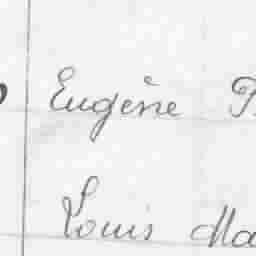 Eugène
Louis